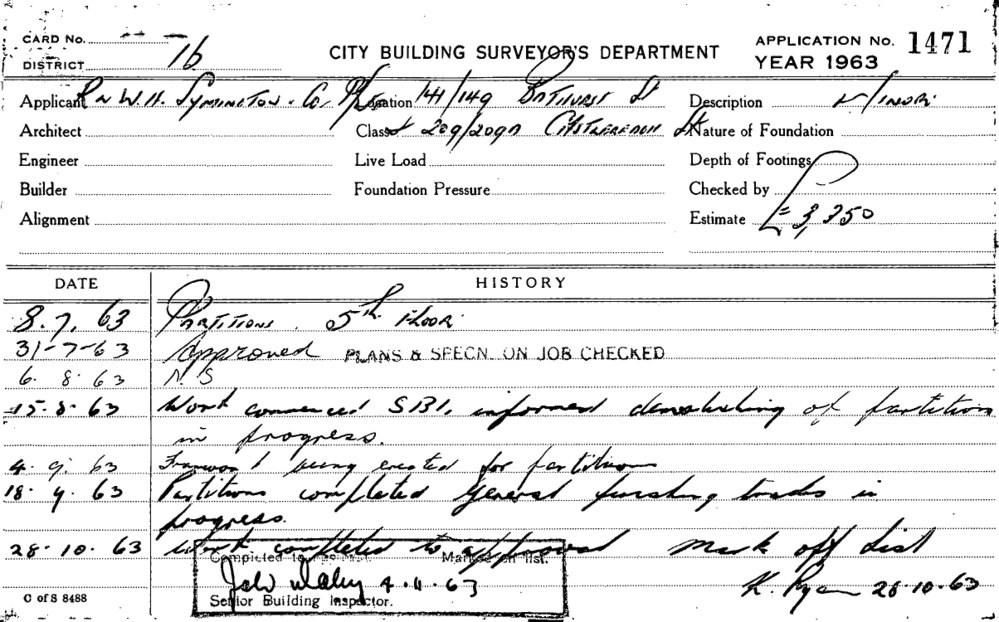 CARD No.
CITY BUILDING SURVEYOR'S DEPARTMENT
APPLICATION No. 1471
DISTRICT 16
YEAR 1963
Applicant R W. H. Symington Co. P/L Location 141/149 Bathurst St Description Minor.
Architect Class 209/209A Castlereagh St Nature of Foundation
Engineer Live Load Depth of Footings
Builder Foundation Pressure Checked by
Alignment Estimate £ 3,350
DATE HISTORY
8.7.63 Partitions. 5th Floor.
31-7-63 Approved PLANS & SPECN. ON JOB CHECKED
6.8.63 N S
15.8.63 Work commenced SBI. informed demolishing of partition
in progress.
4.9.63 being erected for partitions
18.9.63 Partitions completed General finishing trades in
progress.
28.10.63 Work completed to approval Mark off List
Completed to Marked on list.
4.11.63 K. Ryan 28.10.63
Senior Building Inspector.
C of S 8488